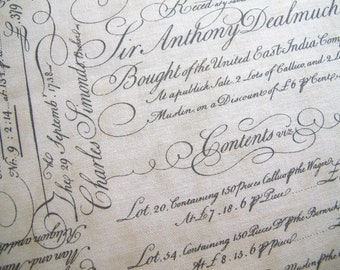 Recd
Sir Anthony Dealmuch
Bought of the United East-India Comp
At a publick Sale, 2 Lots of Callico, and 2 Lo
Muslin, on a Discount of £6 ꝑ Cent
Contents viz.
Lot. 20. Containing 150 pieces Callico of the Wager
At £7.18.6 ꝑ Piece
Lot. 54. Containing 150 Pieces Do of the
At £8.15.6 ꝑ Piece
of the
£319
No. 9:2:14 at 15
The 29 Septembr. 1738
Charles Simonds
Religion
Man and